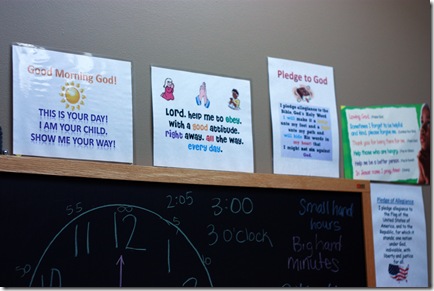 Good Morning God!
THIS IS YOUR DAY!
I AM YOUR CHILD.
SHOW ME YOUR WAY!
Lord, help me to obey.
With a good attitude.
right away. all the way.
every day.
Pledge to God
I pledge allegiance to the
Bible God's Holy Word
I will make it a
unto my feet and a
unto my path and
will hide its words in
my heart that
I might not sin against
God.
Loving God,
Sometimes I forget to be helpful
and kind, please forgive me.
Thank you for being there for me.
Help those who are hungry.
Help me be a better person.
In Jesus' name I pray
Pledge of Allegiance
I pledge allegiance to the
Flag of the United
States of America,
and to the Republic,
for which it stands, one
nation under God,
indivisible, with
liberty and justice
for all.
2:05
3:00
3 o'clock
Small hand
hours
Big hand
minutes
55
00
11
12
10